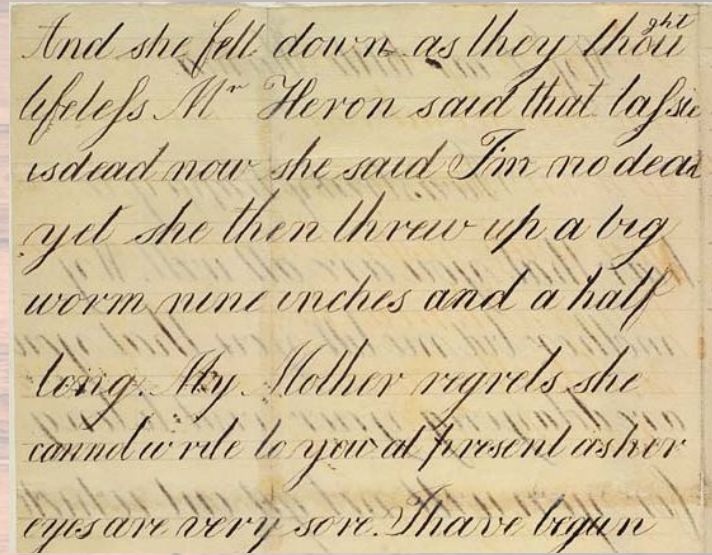 And she fell down as they thought
lifeless Mr Heron said that lassie
is dead now she said I'm no dead
yet she then threw up a big
worm nine inches and a half
long. My Mother regrets she
cannot write to you at present as her
eyes are very sore. I have begun